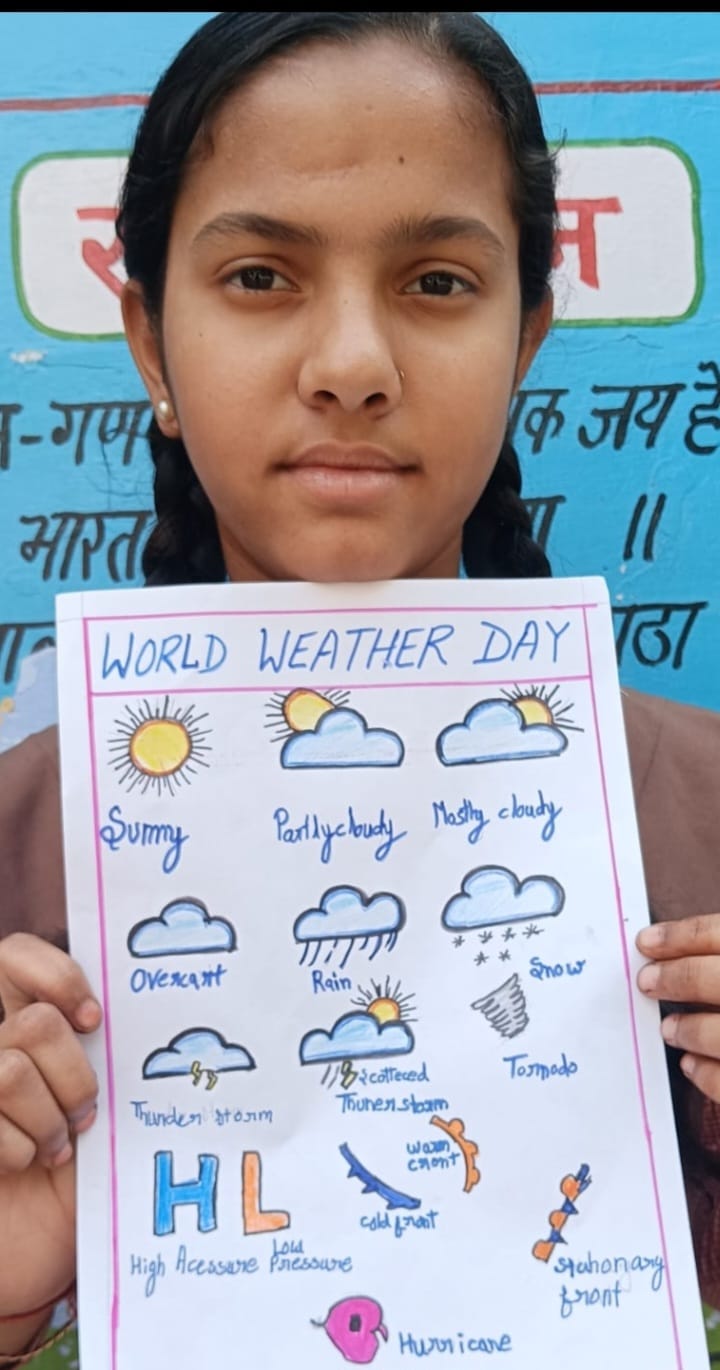 -गण
क जय है
भारत
॥
WORLD WEATHER DAY
Sunny
Partlycloudy
Mostly cloudy
Overcast
Rain
Snow
Thunder storm
Scotteced
Thunerstorm
Tornado
H L
warm
cront
cold front
High Acessure
Low
Pressure
Stahonary
front
Hurricane